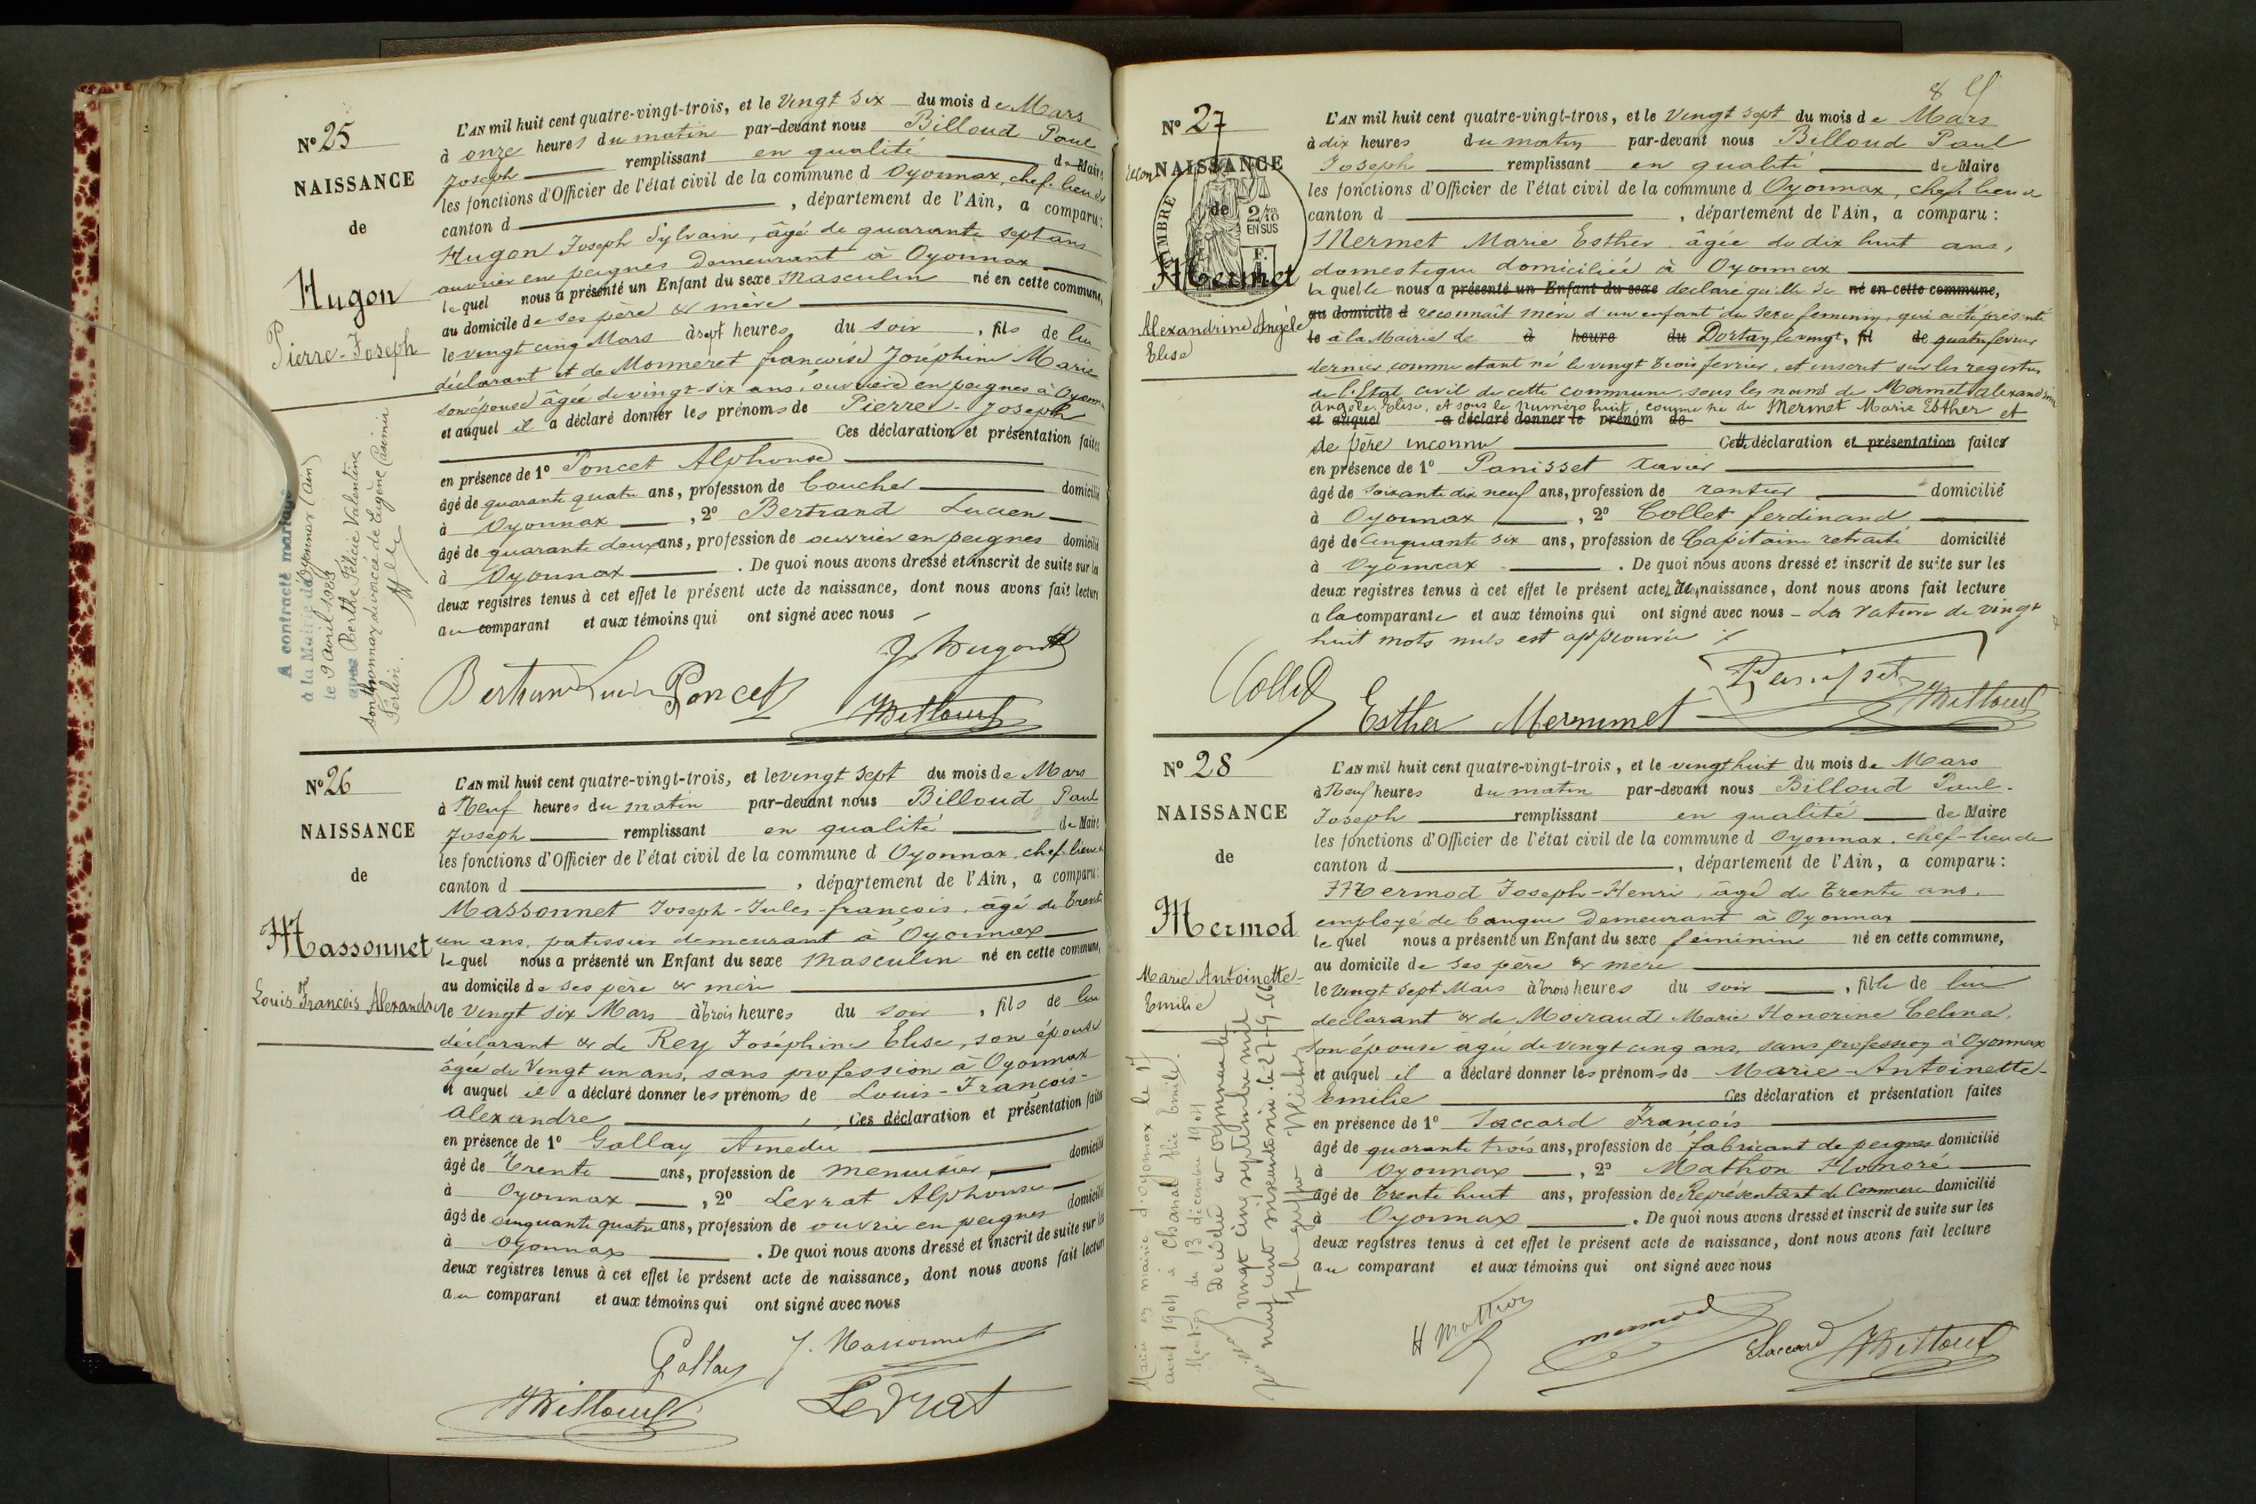 N° 25
NAISSANCE
de
Hugon
Pierre-Joseph
A contracté mariage
à la Mairie de Oyonnax (Ain)
le 9 avril
avec Berthe Félicie Valentine
divorcée de Eugène Casimir
L'AN mil huit cent quatre-vingt-trois, et le vingt six du mois de Mars
à onze heures du matin par-devant nous Billoud Paul
Joseph remplissant en qualité de Maire
les fonctions d'Officier de l'état civil de la commune d Oyonnax, chef-lieu de
canton d , département de l'Ain, a comparu :
Hugon Joseph Sylvain, âgé de quarante sept ans
ouvrier en peignes demeurant à Oyonnax
lequel nous a présenté un Enfant du sexe masculin né en cette commune,
au domicile de ses père & mère
le vingt cinq Mars à sept heures du soir , fils de lui
déclarant et de Monneret françoise Joséphine Marie
son épouse âgée de vingt-six ans, ouvrière en peignes à Oyonnax
et auquel il a déclaré donner les prénoms de Pierre-Joseph
Ces déclaration et présentation faites
en présence de 1° Poncet Alphonse
âgé de quarante quatre ans, profession de boucher domicilié
à Oyonnax , 2° Bertrand Lucien
âgé de quarante deux ans, profession de ouvrier en peignes domicilié
à Oyonnax . De quoi nous avons dressé et inscrit de suite sur les
deux registres tenus à cet effet le présent acte de naissance, dont nous avons fait lecture
au comparant et aux témoins qui ont signé avec nous
J. Hugon
Bertrand Lucien Poncet
Billoud
N° 26
NAISSANCE
de
Massonnet
Louis François Alexandre
L'AN mil huit cent quatre-vingt-trois, et le vingt sept du mois de Mars
à Neuf heures du matin par-devant nous Billoud Paul
Joseph remplissant en qualité de Maire
les fonctions d'Officier de l'état civil de la commune d Oyonnax, chef-lieu de
canton d , département de l'Ain, a comparu :
Massonnet Joseph-Jules-françois, âgé de trente
un ans, patissier demeurant à Oyonnax
lequel nous a présenté un Enfant du sexe masculin né en cette commune,
au domicile de ses père & mère
le vingt six Mars à trois heures du soir , fils de lui
déclarant & de Rey Joséphine Elise, son épouse
âgée de Vingt un ans, sans profession à Oyonnax
et auquel il a déclaré donner les prénoms de Louis-François-
Alexandre Ces déclaration et présentation faites
en présence de 1° Gallay Amédée
âgé de trente ans, profession de menuisier domicilié
à Oyonnax , 2° Levrat Alphonse
âgé de cinquante quatre ans, profession de ouvrier en peignes domicilié
à Oyonnax . De quoi nous avons dressé et inscrit de suite sur les
deux registres tenus à cet effet le présent acte de naissance, dont nous avons fait lecture
au comparant et aux témoins qui ont signé avec nous
Gallay J. Massonnet
Billoud Levrat
N° 27
NAISSANCE
de
Mermet
Alexandrine Angèle
Elise
TIMBRE
2/10
EN SUS
L'AN mil huit cent quatre-vingt-trois, et le vingt sept du mois de Mars
à dix heures du matin par-devant nous Billoud Paul
Joseph remplissant en qualité de Maire
les fonctions d'Officier de l'état civil de la commune d Oyonnax, chef-lieu de
canton d , département de l'Ain, a comparu :
Mermet Marie Esther âgée de dix huit ans,
domestique domiciliée à Oyonnax
laquelle nous a présenté un Enfant du sexe déclaré qu'elle se né en cette commune,
au domicile d reconnaît mère d'un enfant du sexe féminin, qui a été présenté
le à la Mairie de à heure du Dortan le vingt, fil de quatre fevrier
dernier, comme étant né le vingt trois fevrier, et inscrit sur les registres
de l'Etat civil de cette commune, sous les noms de Mermet alexandrine
angèle, Elise, et sous le numéro huit, comme né de Mermet Marie Esther et
et auquel a déclaré donner le prénom de
de père inconnu Cette déclaration et présentation faites
en présence de 1° Panisset Xavier
âgé de soixante dix neuf ans, profession de rentier domicilié
à Oyonnax , 2° Collet ferdinand
âgé de cinquante six ans, profession de Capitaine retraité domicilié
à Oyonnax . De quoi nous avons dressé et inscrit de suite sur les
deux registres tenus à cet effet le présent acte de naissance, dont nous avons fait lecture
a la comparante et aux témoins qui ont signé avec nous - La rature de vingt
huit mots nuls est approuvée
Collet Panisset
Esther Mermet Billoud
N° 28
NAISSANCE
de
Mermod
Marie Antoinette-
Emilie
Mariée en mairie d'Oyonnax le 17
avril 1904 à Chanal Elie Emile.
Décédée à Oyonnax le
vingt cinq septembre mil
neuf cent soixante six. le 27-9-66
le greffier
L'AN mil huit cent quatre-vingt-trois, et le vingt huit du mois de Mars
à Neuf heures du matin par-devant nous Billoud Paul-
Joseph remplissant en qualité de Maire
les fonctions d'Officier de l'état civil de la commune d Oyonnax, chef-lieu de
canton d , département de l'Ain, a comparu :
Mermod Joseph-Henri, âgé de trente ans,
employé de banque demeurant à Oyonnax
lequel nous a présenté un Enfant du sexe féminin né en cette commune,
au domicile de ses père & mère
le vingt sept Mars à trois heures du soir , fille de lui
déclarant & de Moiraud Marie Honorine Celina,
son épouse âgée de vingt cinq ans, sans profession à Oyonnax
et auquel il a déclaré donner les prénoms de Marie-Antoinette-
Emilie Ces déclaration et présentation faites
en présence de 1° Saccard François
âgé de quarante trois ans, profession de fabricant de peignes domicilié
à Oyonnax , 2° Mathon Honoré
âgé de trente huit ans, profession de Représentant de Commerce domicilié
à Oyonnax . De quoi nous avons dressé et inscrit de suite sur les
deux registres tenus à cet effet le présent acte de naissance, dont nous avons fait lecture
au comparant et aux témoins qui ont signé avec nous
H Mathon mermod Saccard Billoud